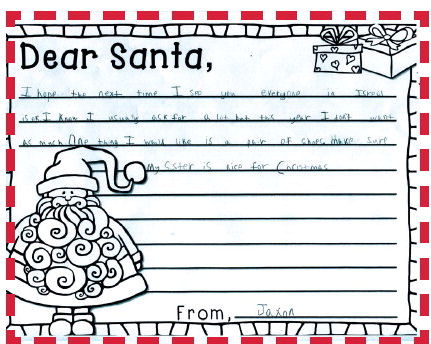 Dear Santa,
I hope the next time I see you everyone in Israel
is ok I know I usually ask for a lot but this year I dont want
as much One thing I would like is a pair of shoes make sure
My sster is nice for Christmas
From, Jaxon